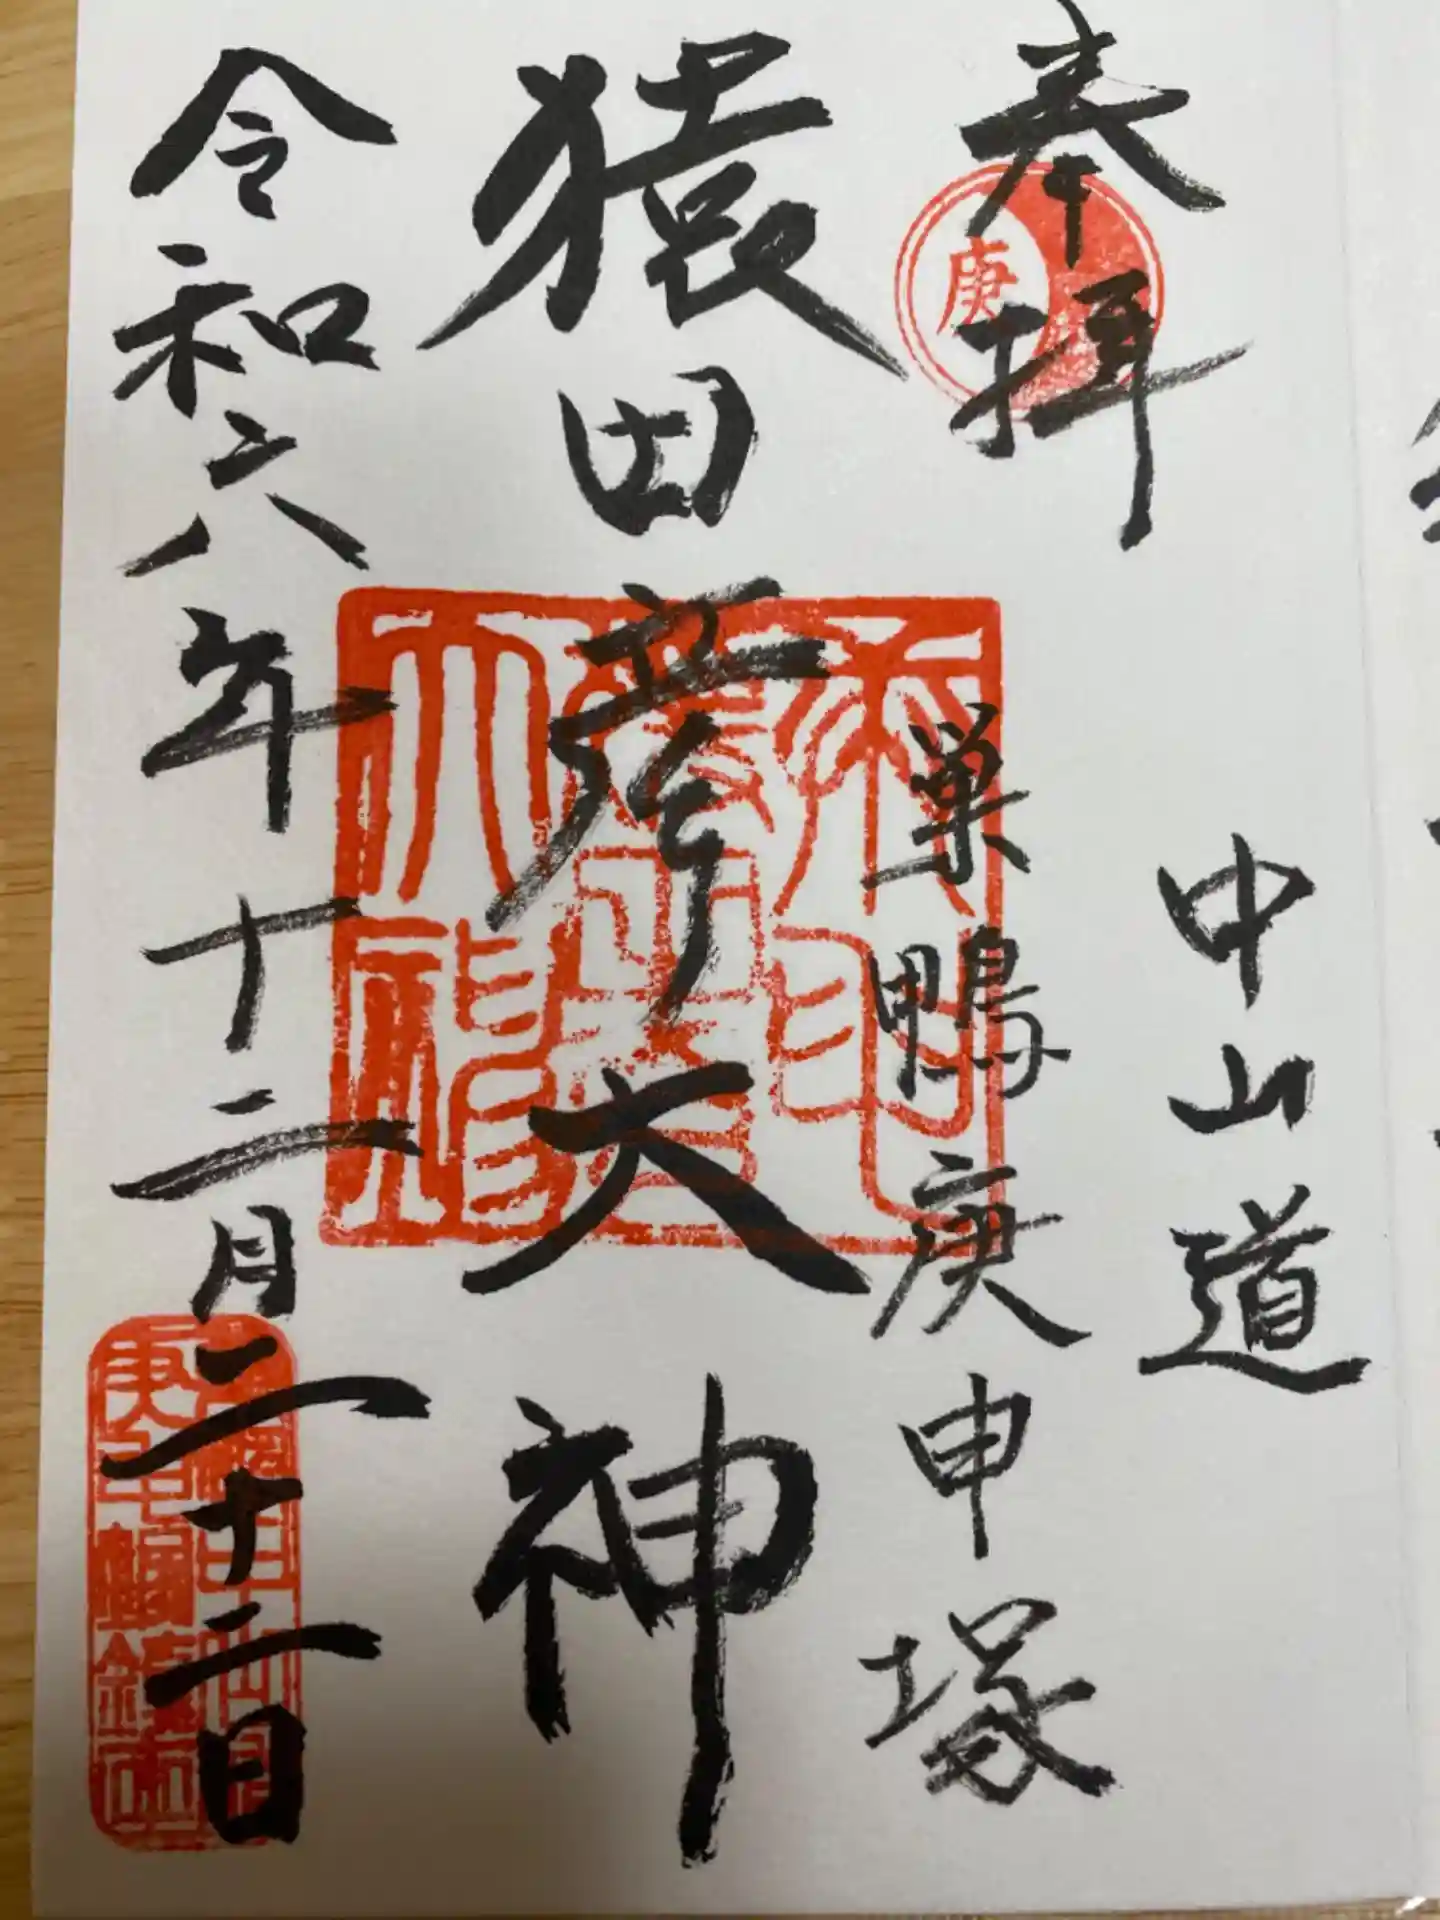 奉拝
中山道
巣鴨庚申塚
猿田彦大神
令和六年十二月二十二日
庚